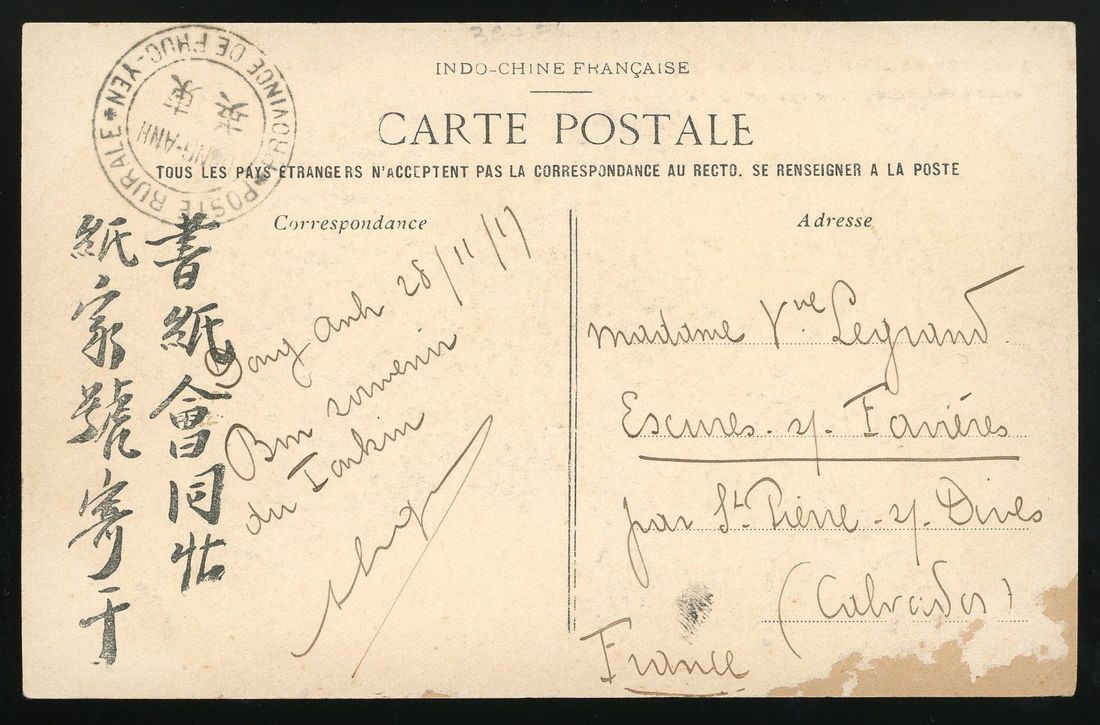 INDO-CHINE FRANÇAISE
CARTE POSTALE
TOUS LES PAYS ÉTRANGERS N'ACCEPTENT PAS LA CORRESPONDANCE AU RECTO. SE RENSEIGNER A LA POSTE
PROVINCE DE PHUC-YEN
POSTE RURALE
Correspondance
Dong Anh 28/11/17
Bon souvenir
du Tonkin
書紙會同
紙家號寄于
Adresse
Madame Vve Legrand
Escures s/ Favières
par St Pierre s/ Dives
(Calvados)
France